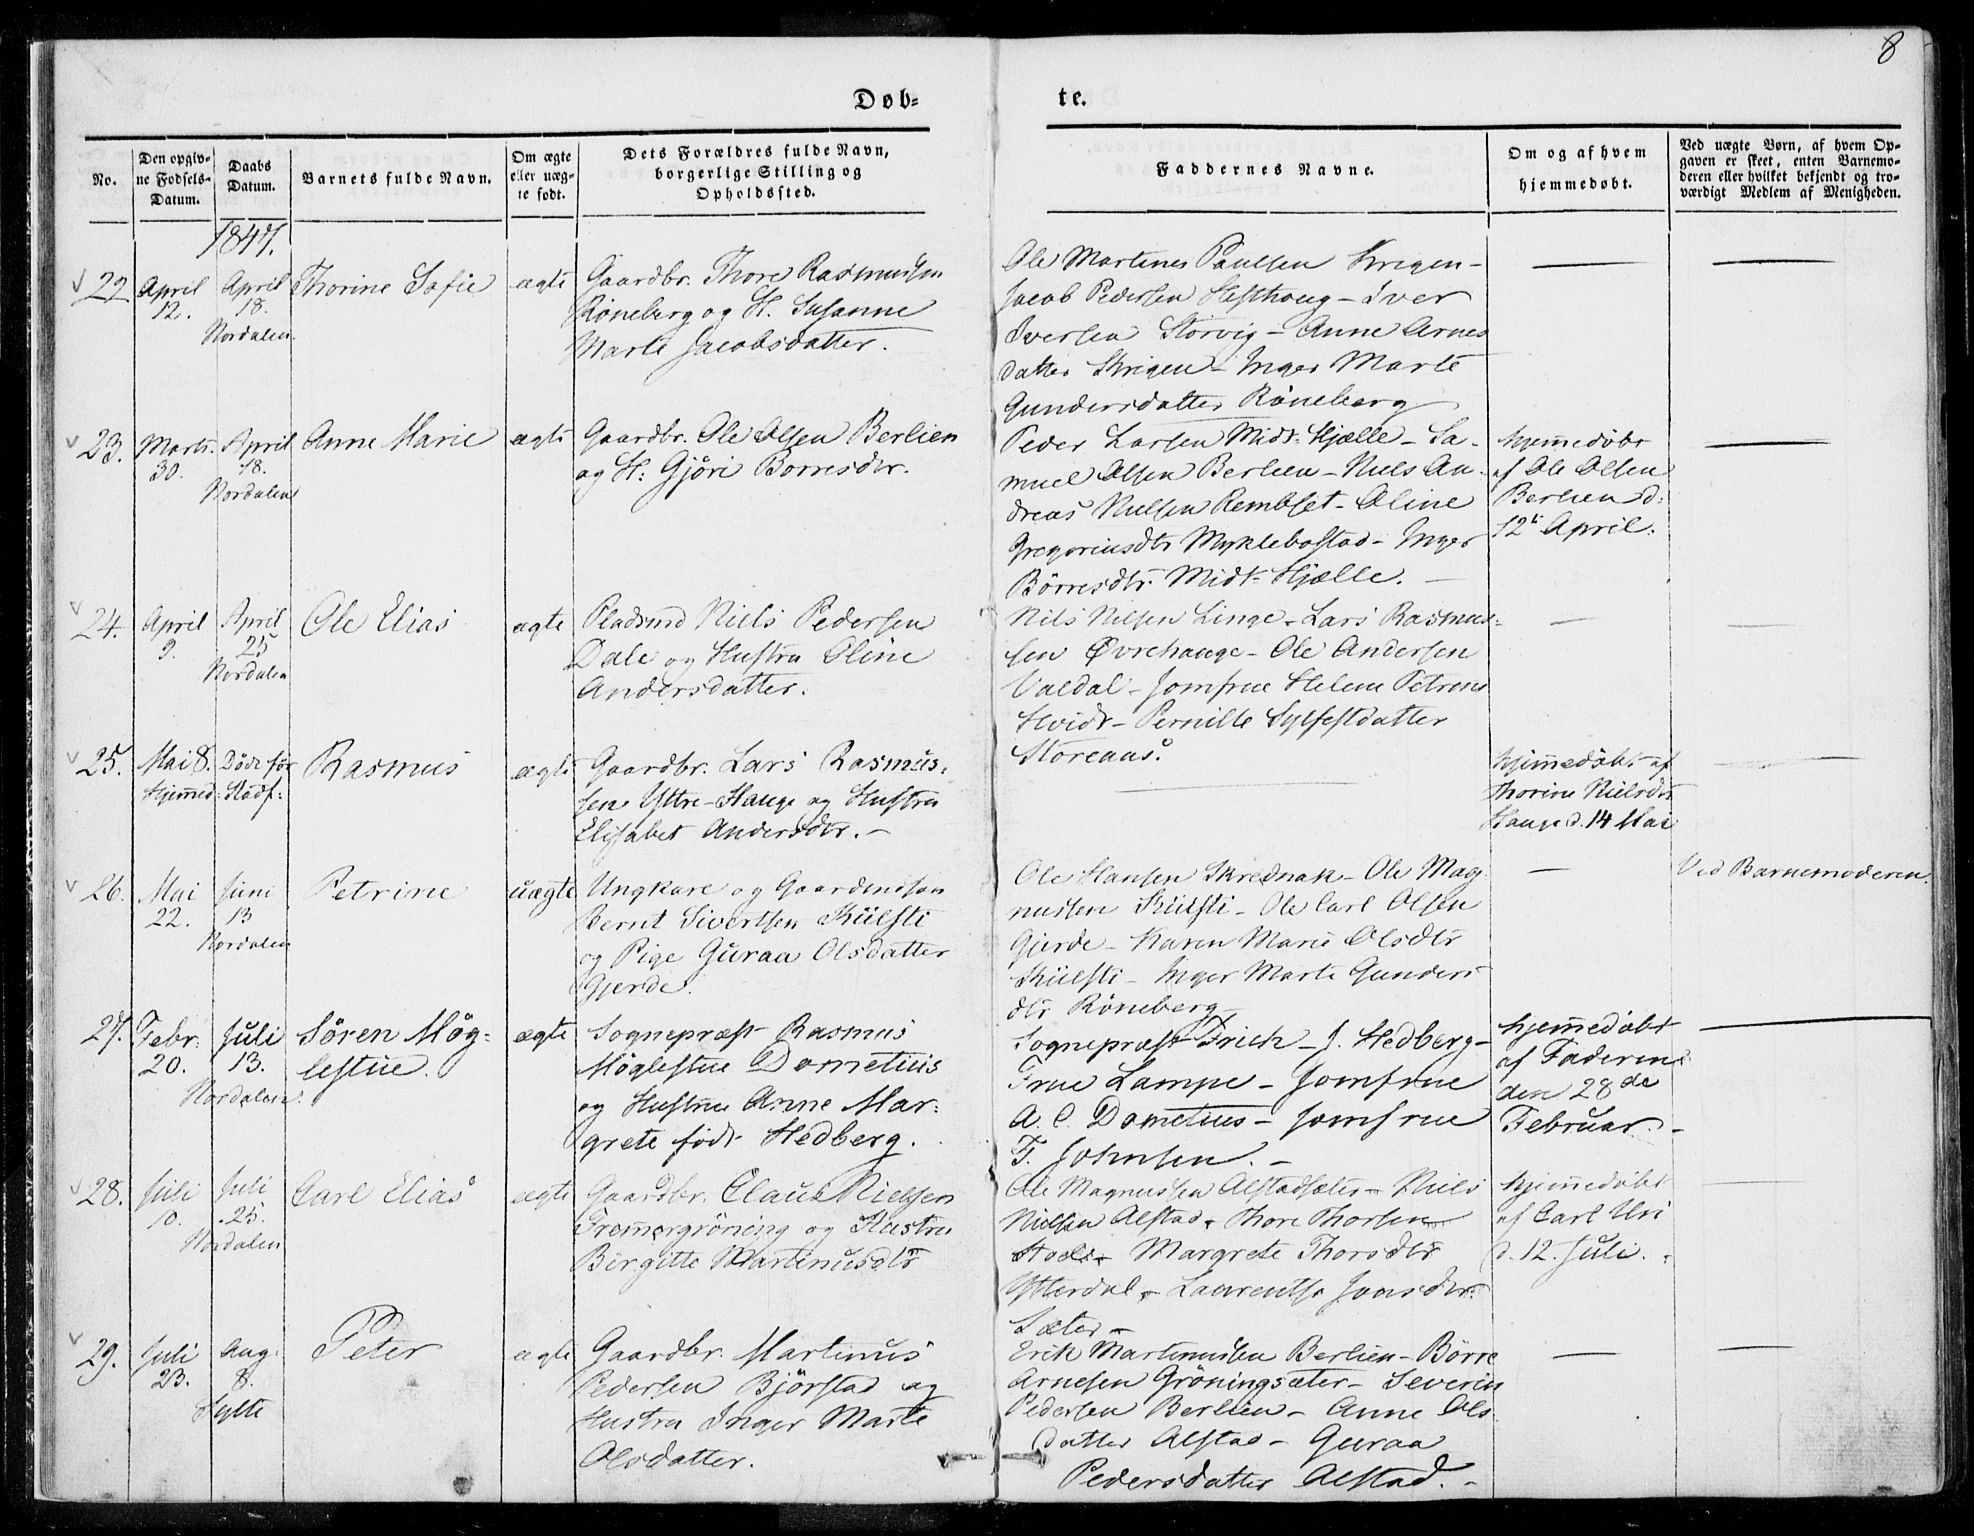 8
Døb-
te.
No.
Den opgiv-
ne Fødsels-
Datum.
Daabs
Datum.
Barnets fulde Navn.
Om ægte
eller uæg-
te født.
Dets Forældres fulde Navn,
borgerlige Stilling og
Opholdssted.
Faddernes Navne.
Om og af hvem
hjemmedøbt.
Ved uægte Børn, af hvem Op-
gaven er skeet, enten Barnemo-
deren eller hvilket bekjendt og tro-
værdigt Medlem af Menigheden.
1847.
22
April
12.
April
18.
Nordalen.
Thorine Sofie
ægte
Gaardbr. Thore Rasmussen
Røneberg og H. Susanne
Marte Jacobsdatter.
Ole Martines Paulsen Krigen-
Jacob Pedersen Hesthoug - Iver
Iversen Storvig - Anne Arnes
datter Krigen - Inger Marte
Gundersdatter Røneberg
23.
Marts
30.
April
18.
Nordalen
Anne Marie
ægte
Gaardbr. Ole Olsen Berlien
og H: Gjöri Borresdtr.
Peder Larsen Midt-Hjælle - Sa-
muel Olsen Berlien - Niels An-
dreas Nielsen Rembset - Oline
Gregoriusdtr Myklebostad - Inger
Börresdtr. Midt-Hjælle. -
hjemmedøbt
af Ole Olsen
Berlien d:
12te April.
24.
April
9.
April
25
Nordalen
Ole Elias
ægte
Pladsmd Niels Pedersen
Dale og Hustru Oline
Andersdatter.
Nils Nilsen Linge - Lars Rasmus-
sen Øvrehauge - Ole Andersen
Valdal - Jomfrue Helene Petrine
Hvidt - Pernille Sylfestdatter
Storeaas.
25.
Mai 8.
Hjemmed:
Døde før
Stadf:
Rasmus
ægte
Gaardbr. Lars Rasmus-
sen Yttre-Hauge og Hustru
Elisabet Andersdtr. -
hjemmedøbt af
Thorine Nielsdtr
Hauge d. 14 Mai
26.
Mai
22.
Juni
13
Nordalen
Petrine
uægte
Ungkare og Gaardmdsøn
Bernt Sivertsen Küilsti
og Pige Guraa Olsdatter
Gjerde.
Ole Hansen Skrednak - Ole Mag-
nussen Küilsti - Ole Carl Olsen
Gjerde - Karen Marie Olsdtr
Küilsti - Inger Marte Gunders
dtr Röneberg -
Ved Barnemoderen.
27.
Febr.
20.
Juli
13.
Nordalen.
Sören Mög-
lestue.
ægte
Sognepræst Rasmus
Möglestue Dometius
og Hustru Anne Mar-
grete født Hedberg.
Sognepræst Frich - J. Hedberg -
Frue Lampe - Jomfrue
A. C. Dometius - Jomfrue
F. Johnsen. -
hjemmedøbt
af Faderen
den 28de
Februar. -
28.
Juli
10.
Juli
25.
Nordalen
Carl Elias
ægte
Gaardbr. Claus Nielsen
Fremmergröning og Hustru
Birgitte Martinusdtr
Ole Magnussen Alstadsæter - Niels
Nielsen Alstad - Thore Thorsen
Margrete Thorsdtr
Ytterdal - Laurentse Jonsdtr.
Sæter -
hjemmedøbt
af Carl Uri
d. 12. Juli.
29.
Juli
23.
Aug.
8.
Sylte
Peter
ægte
Gaardbr. Martinus
Pedersen Bjørstad og
Hustru Inger Marte
Olsdatter.
Erik Martinussen Berlien - Börre
Arnesen Gröningsæter - Severin
Pedersen Berlien - Anne Ols
datter Alstad - Guraa
Pedersdatter Alstad. -